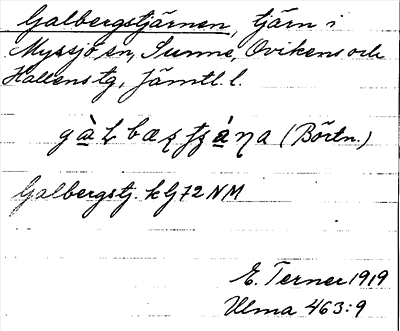 Galbergstjärnen, tjärn i
Myssjö sn, Sunne, Ovikens och
Hallens tg, Jämtl. l.
(Börtn.)
Galbergstj. k GJ 72 NM
E. Terner 1919
Ulma 463:9